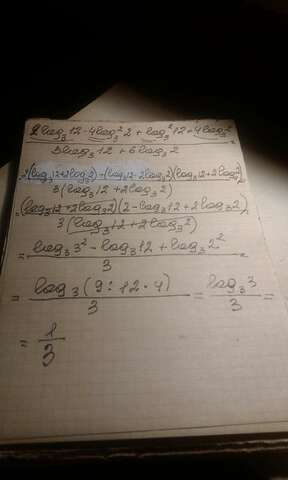 2log₃12-4log₃²2+log₃²12-4log₃²
3log₃12+6log₃2
2(log₃12+2log₃2)-(log₃12-2log₃2)(log₃12+2log₃2)
3(log₃12+2log₃2)
(log₃12+2log₃2)(2-log₃12+2log₃2)
3(log₃12+2log₃2)
=log₃3²-log₃12+log₃2²=
3
=log₃(9:12·4)=log₃3=
3 3
=1
3